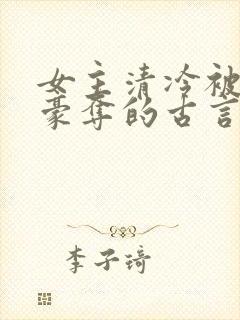 女主清冷被
豪夺的古言
李子琦